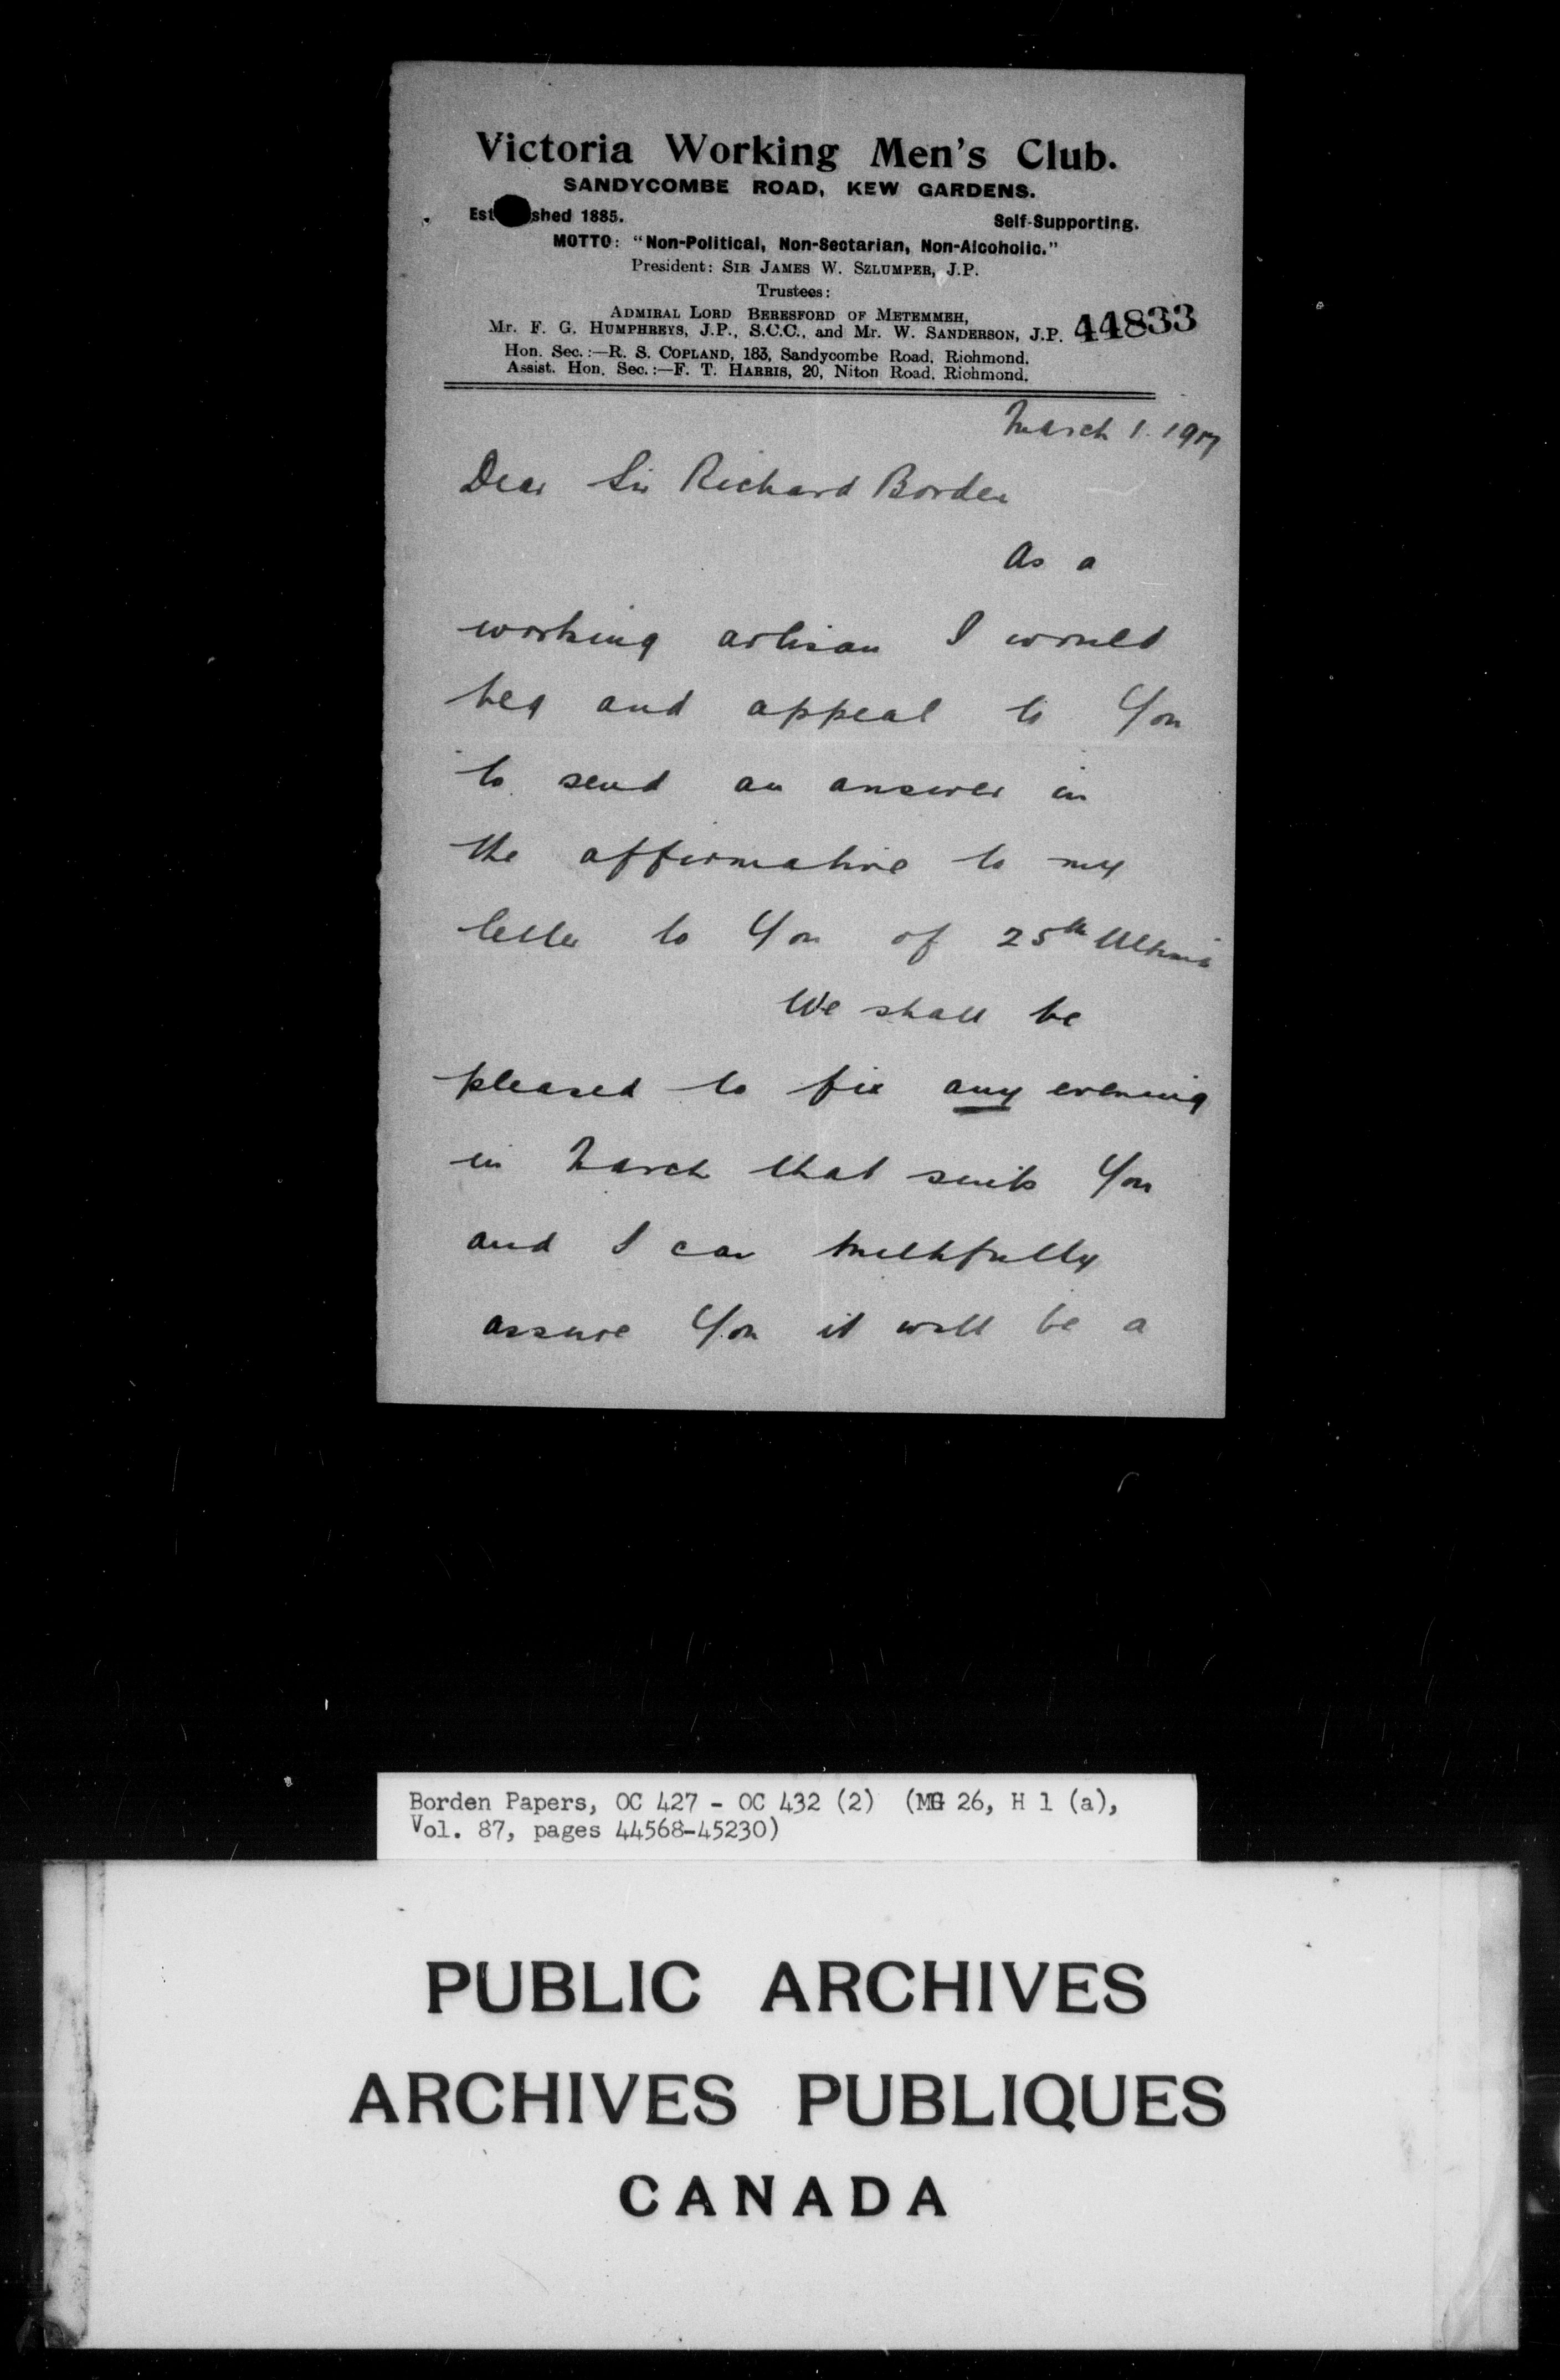 Victoria Working Men's Club.
SANDYCOMBE ROAD, KEW GARDENS.
Est shed 1885. Self-Supporting.
MOTTO: "Non-Political, Non-Sectarian, Non-Alcoholic."
President: SIR JAMES W. SZLUMPER, J.P.
Trustees:
ADMIRAL LORD BERESFORD OF METEMMEH,
Mr. F. G. HUMPHREYS, J.P., S.C.C., and Mr. W. SANDERSON, J.P. 44833
Hon. Sec.:—R. S. COPLAND, 183, Sandycombe Road, Richmond.
Assist. Hon. Sec.:—F. T. HARRIS, 20, Niton Road, Richmond.
March 1. 1917
Dear Sir Richard Borden
As a
working artisan I would
beg and appeal to You
to send an answer in
the affirmative to my
letter to You of 25th Ultimo
We shall be
pleased to fix any evening
in March that suits You
and I can truthfully
assure You it will be a
Borden Papers, OC 427 - OC 432 (2) (MG 26, H 1 (a),
Vol. 87, pages 44568-45230)
PUBLIC ARCHIVES
ARCHIVES PUBLIQUES
CANADA